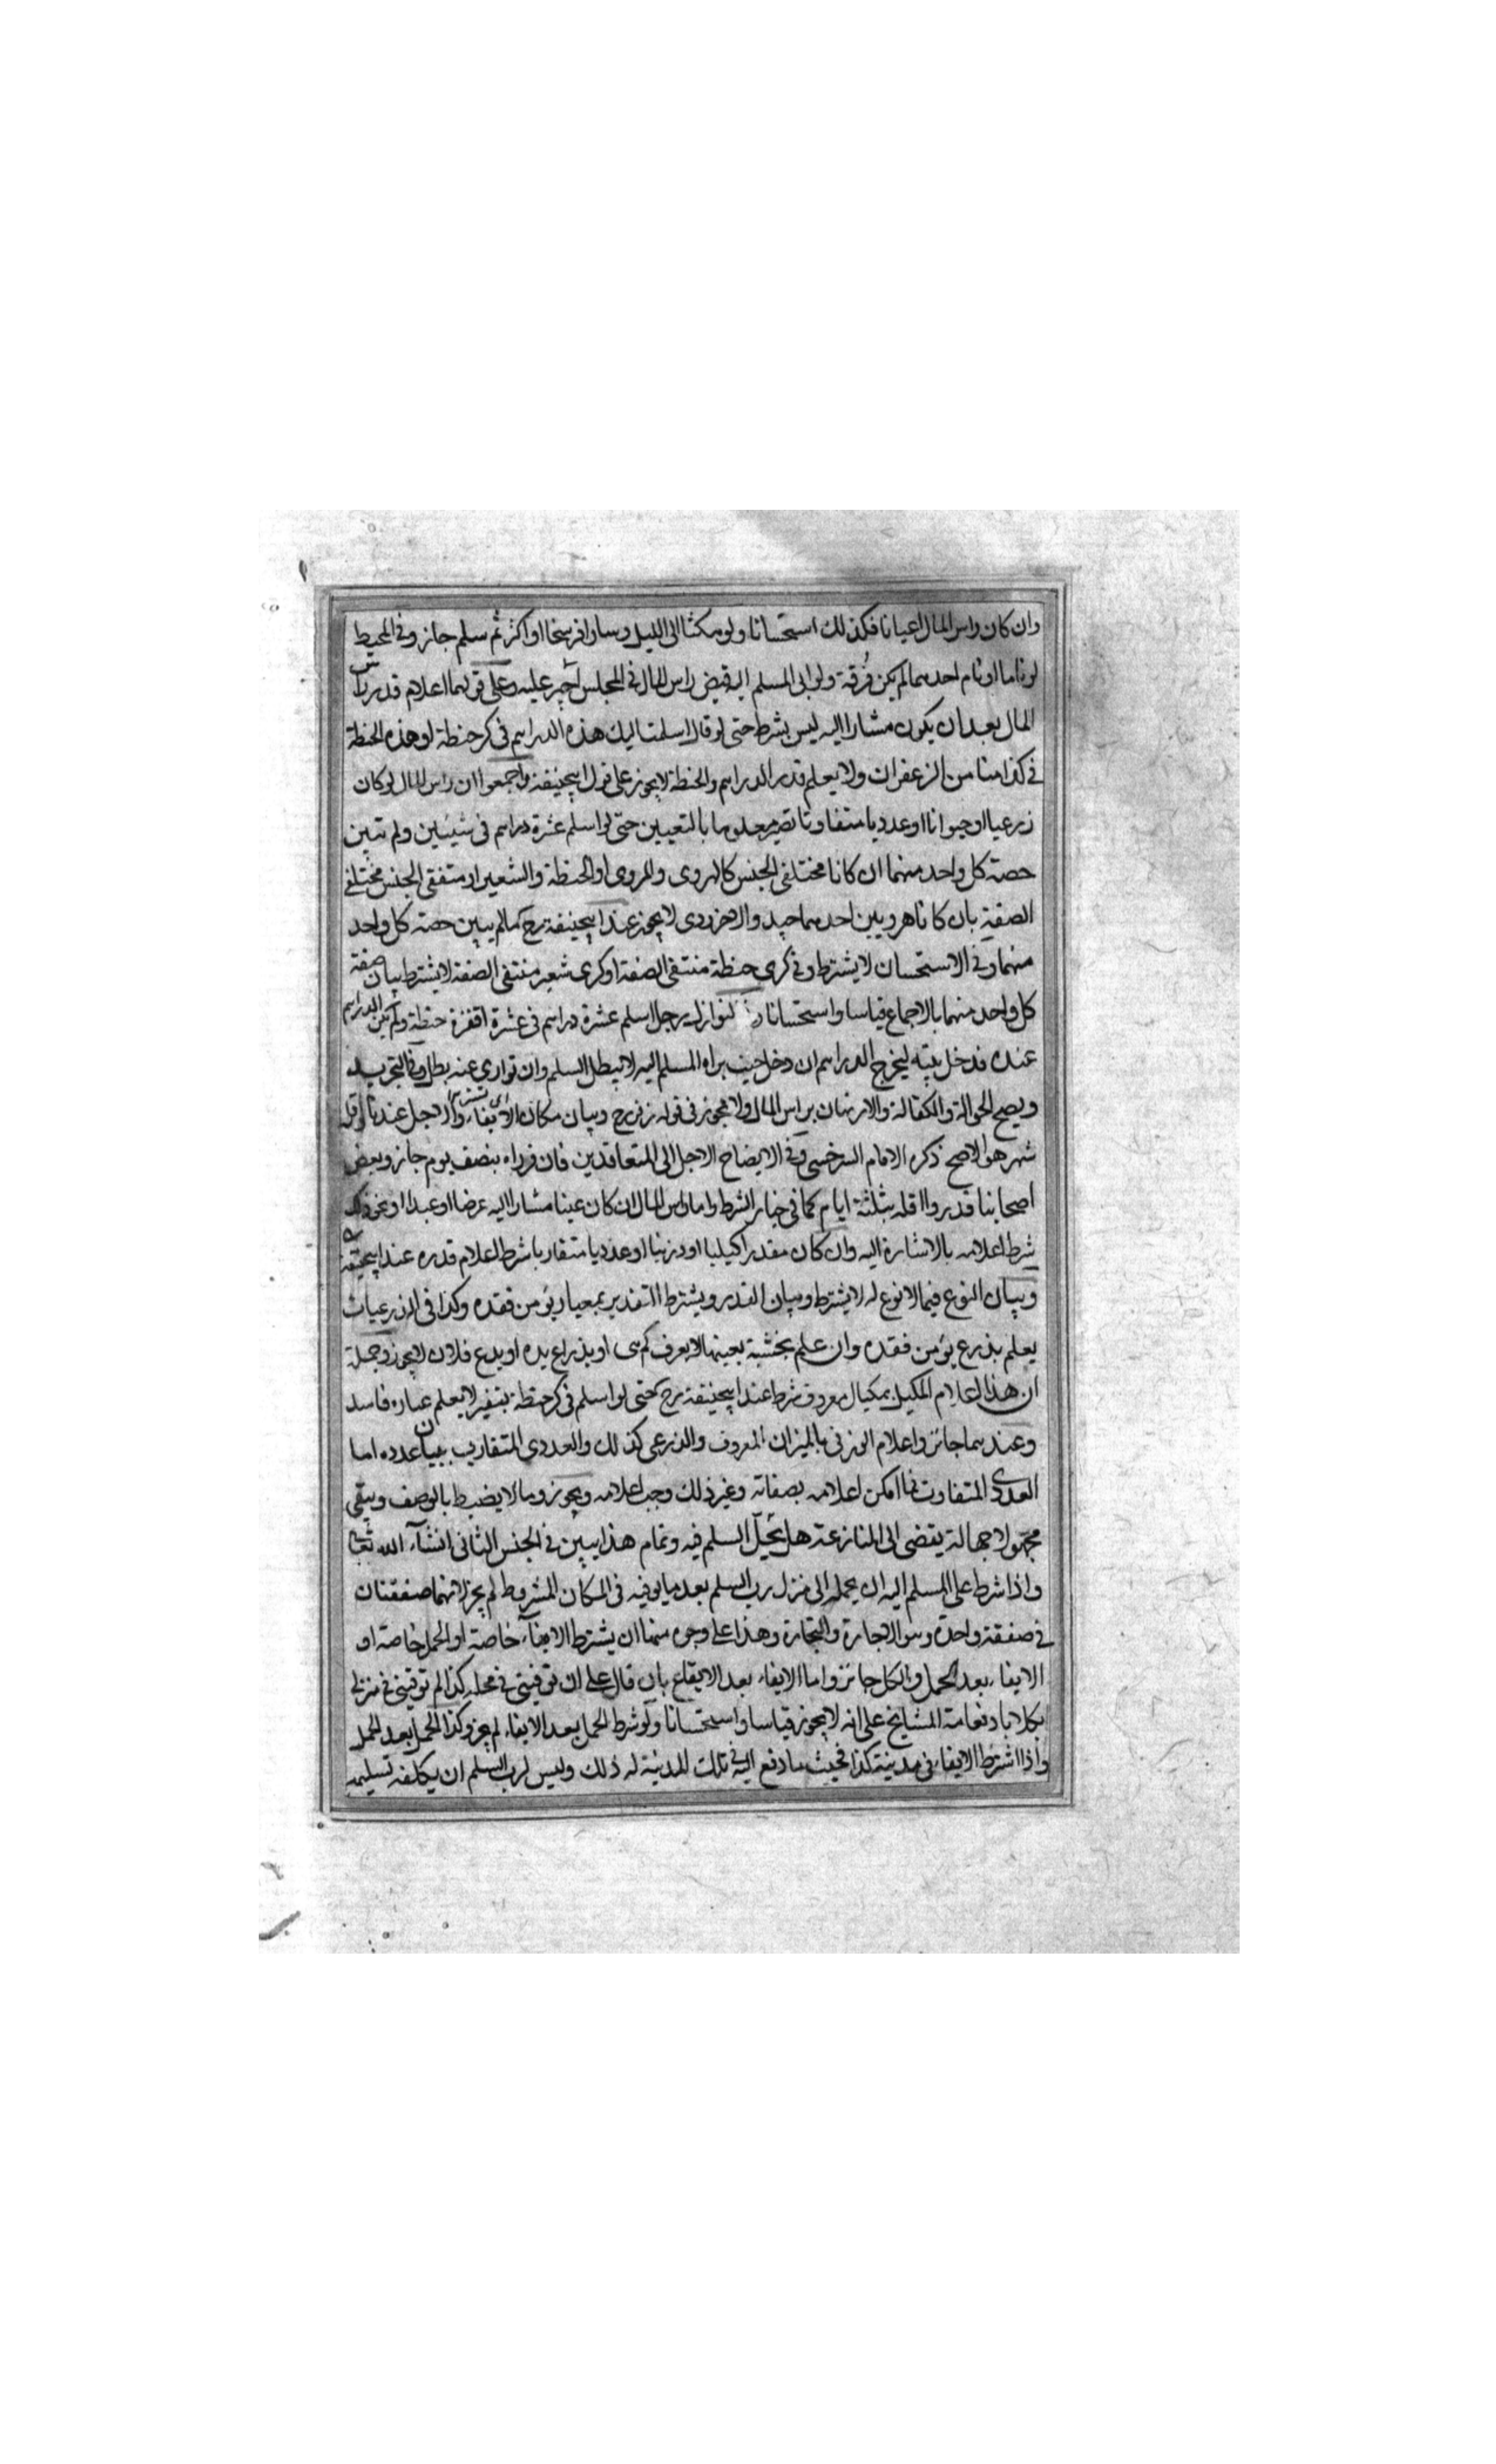 وان كان راس المال اعيانا فكذلك استحسانا ولو مكثا الى الليل وسارا فرسخا او اكثر ثم سلم جاز وفي المحيط
لو ناما او نام احدهما لم يكن فُرقة ولو ابى المسلم اليه قبض راس المال في المجلس اجبر عليه وعلى قولهما اعلام قدر راس
المال بعد ان يكون مشارا اليه ليس بشرط حتى لو قال اسلمت اليك هذه الدراهم في كر حنطة او هذه الحنطة
في كذا منا من الزعفران ولا يعلم قدر الدراهم والحنطة لا يجوز على قول ابيحنيفة واجمعوا ان راس المال لو كان
زرعيا او حيوانا او عدديا متفاوتا يصير معلوما بالتعيين حتى لو اسلم عشرة دراهم في شيئين ولم تبين
حصة كل واحد منهما ان كانا مختلفي الجنس كالهروى والمروى او الحنطة والشعير او متفقى الجنس مختلفي
الصفة بان كانا هرويين احدهما جيد والاخر ردى لا يجوز عند ابيحنيفة رح مالم يبين حصة كل واحد
منهما وفي الاستحسان لا يشترط وفي كرى حنطة منتفقى الصفة او كرى شعير منتفقى الصفة لا يشترط بيان صفة
كل واحد منهما بالاجماع قياسا واستحسانا النوازل رجل اسلم عشرة دراهم في عشرة اقفزة حنطة ولم يكن الدراهم
عنده فدخل بيته ليخرج الدراهم ان دخل حيث يراه المسلم اليه لا يبطل السلم وان توارى عنه بطل وفي التجريد
ويصح الحوالة والكفالة والارتهان براس المال ولا يجوز في قوله زفر رح وبيان مكان الايفاء والاجل عندنا واقله
شهر هو الاصح ذكره الامام السرخسى وفي الايضاح الاجل الى المتعاقدين فان قدراه بنصف يوم جاز وبعض
اصحابنا قدروا اقله بثلثة ايام كما في خيار الشرط واما راس المال ان كان عينا مشارا اليه عرضا او عبدا او نحو ذلك
شرط اعلامه بالاشارة اليه وان كان مقدرا كيليا او وزنيا او عدديا متقاربا شرط اعلام قدره عند ابيحنيفة
وبيان النوع فيما لا نوع له لا يشترط وبيان القدر ويشترط التقدير بمعيار يؤمن فقده وكذا في الذرعيات
يعلم بذرع يؤمن فقده وان علم بخشبة بعينها لا يعرف كم هى او بذراع يده او يدع فلان لا يجوز وجملة
ان هذا اعلام المكيل بمكيال معروف شرط عند ابيحنيفة رح حتى لو اسلم في كر حنطة بقفيز لا يعلم عياره فاسد
وعندهما جائز واعلام الوزنى بالميزان المعروف والذرعى كذلك والعددى المتقارب ببيان عدده اما
العددى المتفاوت فما امكن اعلامه بصفاته وغير ذلك وجب اعلامه ويجوز وما لا يضبط بالوصف ويبقى
مجهولا جهالة يفضى الى المنازعة هل يحيل السلم فيه وتمام هذا يبين في الجنس الثاني انشآء الله تعالى
واذا شرط على المسلم اليه ان يحمله الى منزل رب السلم بعد ما يوفيه في المكان المشروط لم يجز لانهما صفقتان
في صفقة واحدة وهو الاجارة والتجارة وهذا على وجوه منها ان يشترط الايفآء خاصة او الحمل خاصة او
الايفاء بعد الحمل والكل جائز واما الايفاء بعد الايفاء بان قال على ان توفينى في محله كذا ثم توفينى في منزلى
بكلاباد فعامة المشايخ على انه لا يجوز قياسا واستحسانا ولو شرط الحمل بعد الايفاء لم يجز وكذا الحمل بعد الحمل
واذا اشترط الايفاء في مدينة كذا فحيث ما دفع اليه في تلك المدينة له ذلك وليس لرب السلم ان يكلفه تسليمه